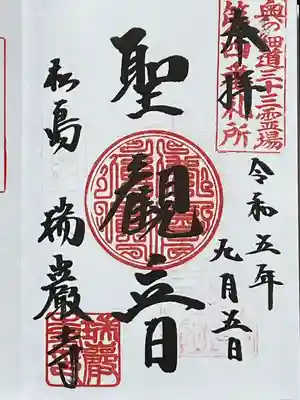 奥の細道三十三霊場
第四番札所
奉拝
令和五年
九月五日
聖観音
松島
瑞巌寺
瑞巌